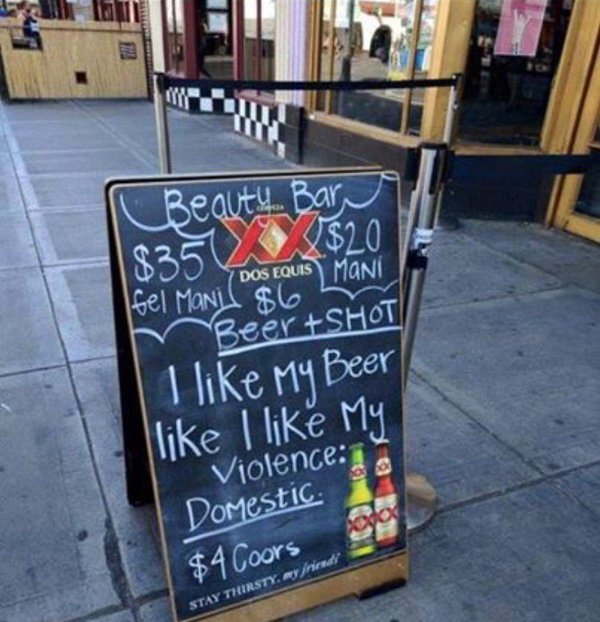 Beauty Bar
CERVEZA
XX
DOS EQUIS
$35
Gel Mani
$20
Mani
$6
Beer + SHOT
I like My Beer
like I like My
Violence:
Domestic.
$4 Coors
XX XX
STAY THIRSTY, my friends